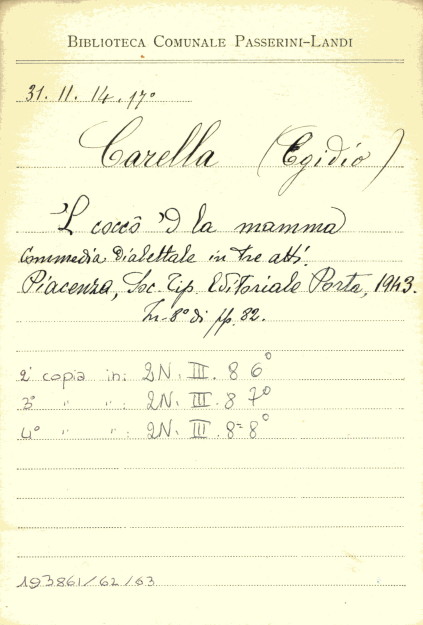 BIBLIOTECA COMUNALE PASSERINI-LANDI
31. II. 14. 17°
Carella (Egidio)
'L coccô 'd la mamma
Commedia dialettale in tre atti.
Piacenza, Soc. Tip. Editoriale Porta, 1943.
In-8° di pp. 82.
2ª copia in: 2N. III. 8 6°
3ª " " : 2N. III. 8 7°
4ª " " : 2N. III. 8= 8°
193861/62/63